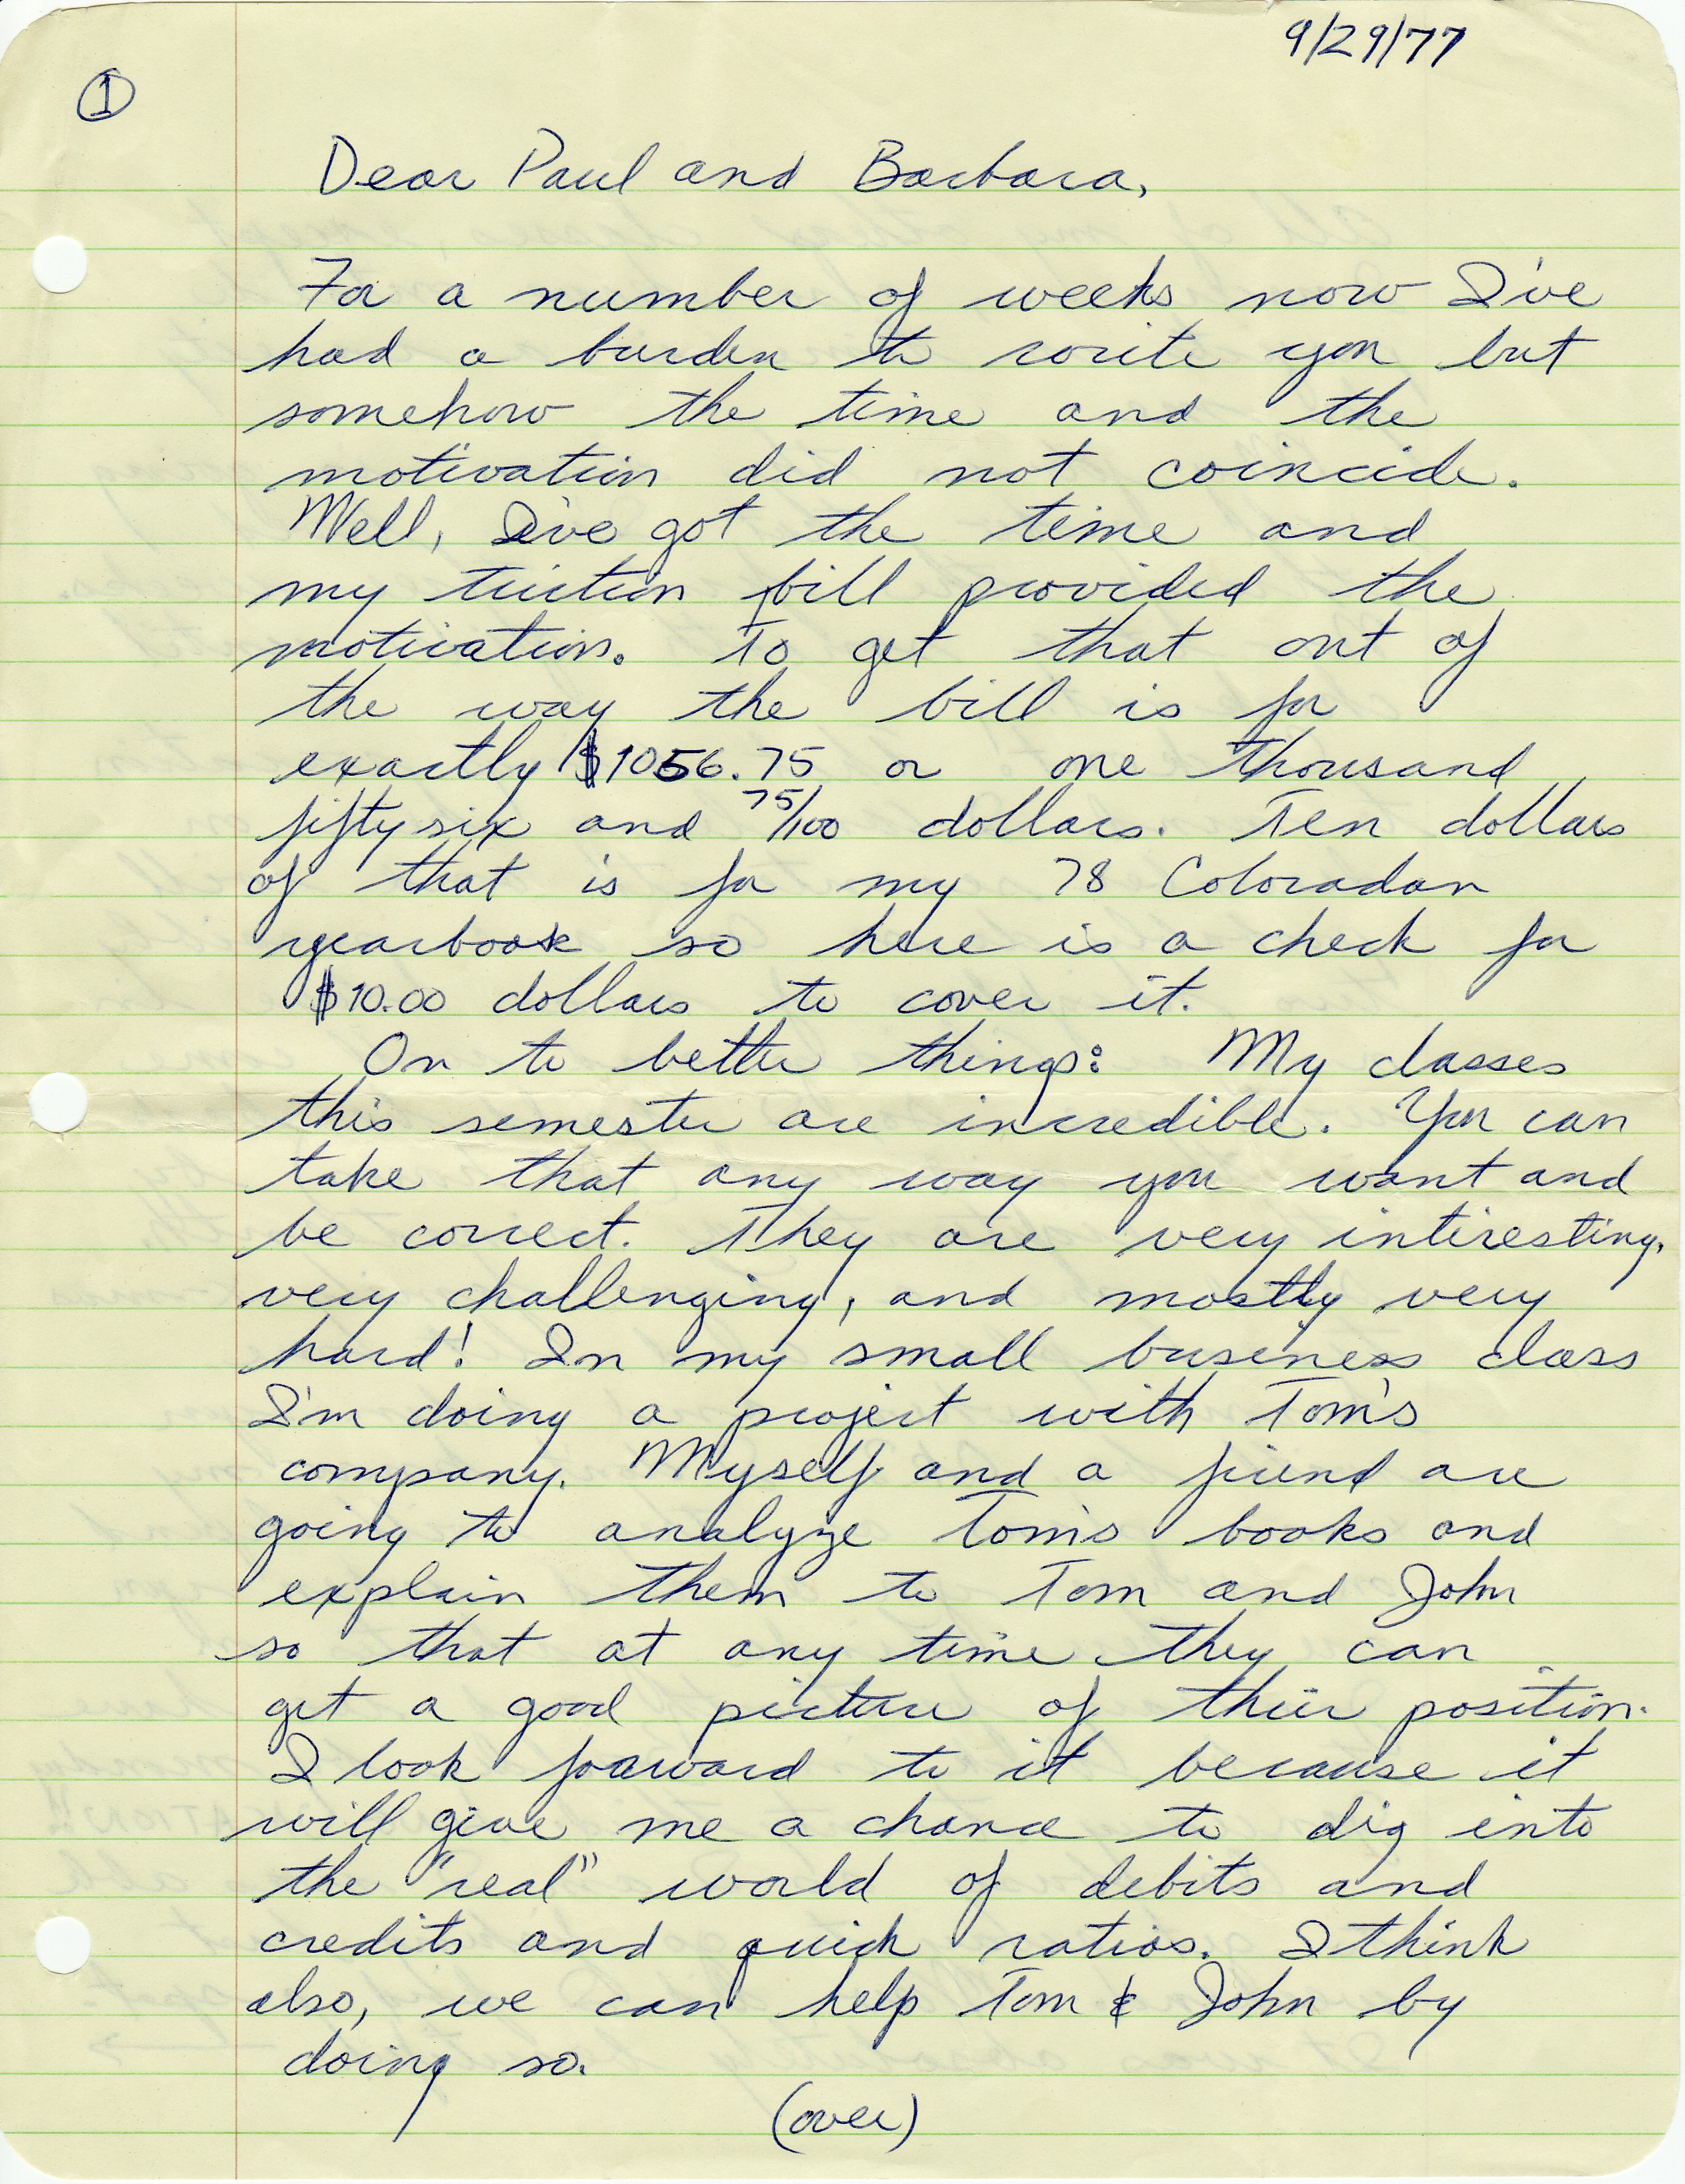 9/29/77
1
Dear Paul and Barbara,
For a number of weeks now I've
had a burden to write you but
somehow the time and the
motivation did not coincide.
Well, I've got the time and
my tuition bill provided the
motivation. To get that out of
the way the bill is for
exactly $1056.75 or one thousand
fifty six and 75/100 dollars. Ten dollars
of that is for my 78 Coloradan
yearbook so here is a check for
$10.00 dollars to cover it.
On to better things: My classes
this semester are incredible. You can
take that any way you want and
be correct. They are very intiresting,
very challenging, and mostly very
hard! In my small business class
I'm doing a project with Tom's
company. Myself and a friend are
going to analyze Tom's books and
explain them to Tom and John
so that at any time they can
get a good picture of their position.
I look forward to it because it
will give me a chance to dig into
the "real" world of debits and
credits and quick ratios. I think
also, we can help Tom & John by
doing so.
(over)